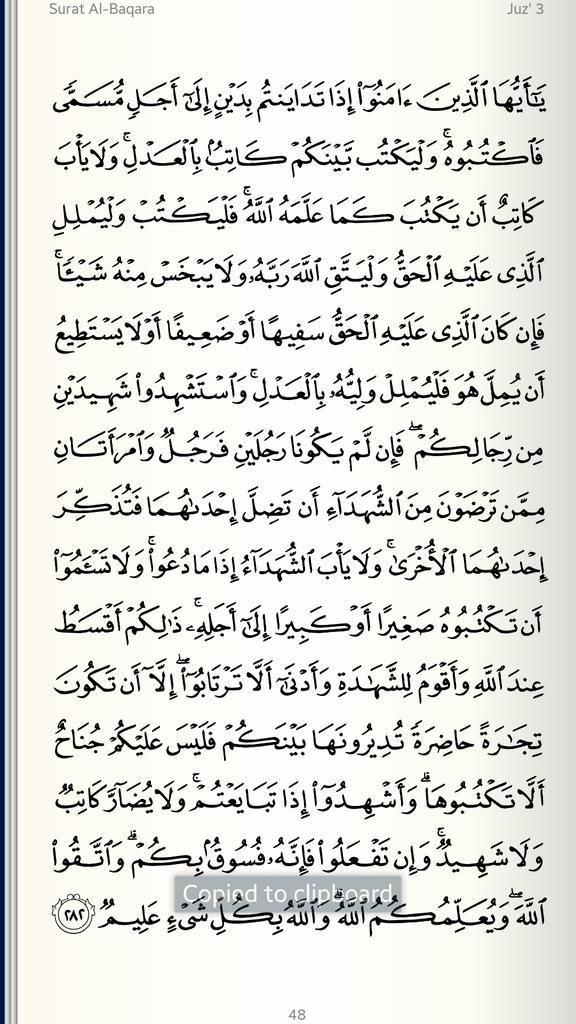 Surat Al-Baqara
Juz' 3
يَـٰٓأَيُّهَا ٱلَّذِينَ ءَامَنُوٓا۟ إِذَا تَدَايَنتُم بِدَيْنٍ إِلَىٰٓ أَجَلٍ مُّسَمًّى
فَٱكْتُبُوهُ ۚ وَلْيَكْتُب بَّيْنَكُمْ كَاتِبٌۢ بِٱلْعَدْلِ ۚ وَلَا يَأْبَ
كَاتِبٌ أَن يَكْتُبَ كَمَا عَلَّمَهُ ٱللَّهُ ۚ فَلْيَكْتُبْ وَلْيُمْلِلِ
ٱلَّذِى عَلَيْهِ ٱلْحَقُّ وَلْيَتَّقِ ٱللَّهَ رَبَّهُۥ وَلَا يَبْخَسْ مِنْهُ شَيْـًٔا ۚ
فَإِن كَانَ ٱلَّذِى عَلَيْهِ ٱلْحَقُّ سَفِيهًا أَوْ ضَعِيفًا أَوْ لَا يَسْتَطِيعُ
أَن يُمِلَّ هُوَ فَلْيُمْلِلْ وَلِيُّهُۥ بِٱلْعَدْلِ ۚ وَٱسْتَشْهِدُوا۟ شَهِيدَيْنِ
مِن رِّجَالِكُمْ ۖ فَإِن لَّمْ يَكُونَا رَجُلَيْنِ فَرَجُلٌ وَٱمْرَأَتَانِ
مِمَّن تَرْضَوْنَ مِنَ ٱلشُّهَدَآءِ أَن تَضِلَّ إِحْدَىٰهُمَا فَتُذَكِّرَ
إِحْدَىٰهُمَا ٱلْأُخْرَىٰ ۚ وَلَا يَأْبَ ٱلشُّهَدَآءُ إِذَا مَا دُعُوا۟ ۚ وَلَا تَسْـَٔمُوٓا۟
أَن تَكْتُبُوهُ صَغِيرًا أَوْ كَبِيرًا إِلَىٰٓ أَجَلِهِۦ ۚ ذَٰلِكُمْ أَقْسَطُ
عِندَ ٱللَّهِ وَأَقْوَمُ لِلشَّهَـٰدَةِ وَأَدْنَىٰٓ أَلَّا تَرْتَابُوٓا۟ ۖ إِلَّآ أَن تَكُونَ
تِجَـٰرَةً حَاضِرَةً تُدِيرُونَهَا بَيْنَكُمْ فَلَيْسَ عَلَيْكُمْ جُنَاحٌ
أَلَّا تَكْتُبُوهَا ۗ وَأَشْهِدُوٓا۟ إِذَا تَبَايَعْتُمْ ۚ وَلَا يُضَآرَّ كَاتِبٌ
وَلَا شَهِيدٌ ۚ وَإِن تَفْعَلُوا۟ فَإِنَّهُۥ فُسُوقٌۢ بِكُمْ ۗ وَٱتَّقُوا۟
Copied to clipboard
ٱللَّهَ ۖ وَيُعَلِّمُكُمُ ٱللَّهُ ۗ وَٱللَّهُ بِكُلِّ شَىْءٍ عَلِيمٌ ٢٨٢
48